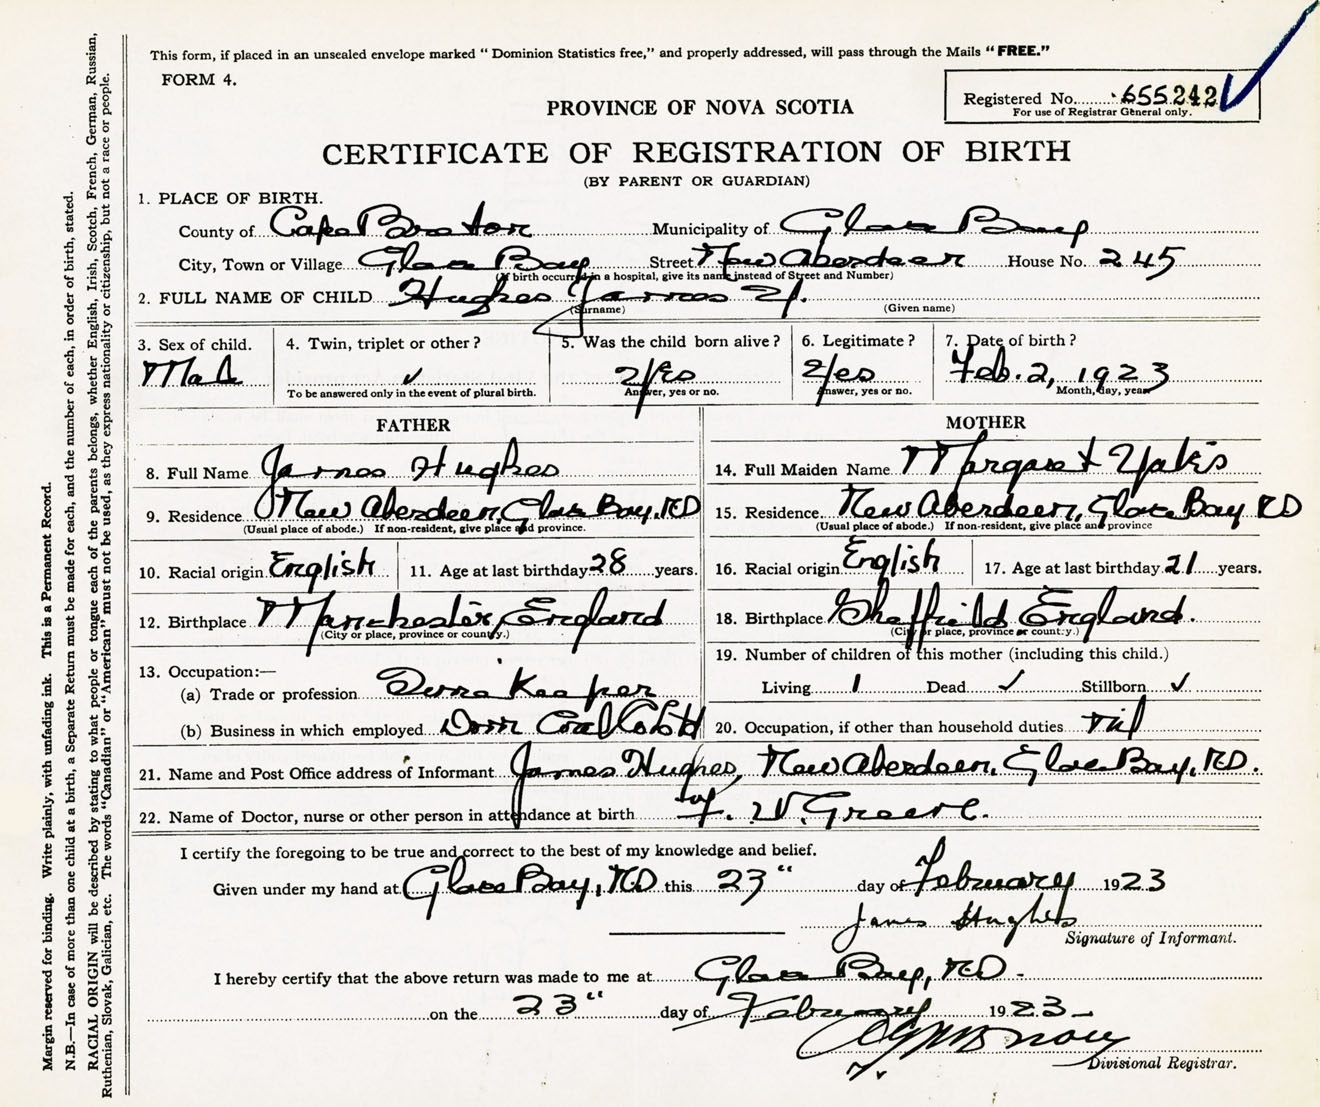 This form, if placed in an unsealed envelope marked “ Dominion Statistics free,” and properly addressed, will pass through the Mails “ FREE.”
FORM 4.
Registered No. 655242
For use of Registrar General only.
PROVINCE OF NOVA SCOTIA
CERTIFICATE OF REGISTRATION OF BIRTH
(BY PARENT OR GUARDIAN)
1. PLACE OF BIRTH.
County of Cape Breton Municipality of Glace Bay
City, Town or Village Glace Bay Street New Aberdeen House No. 245
(If birth occurred in a hospital, give its name instead of Street and Number)
2. FULL NAME OF CHILD Hughes James
(Surname) (Given name)
3. Sex of child. 4. Twin, triplet or other ? 5. Was the child born alive ? 6. Legitimate ? 7. Date of birth ?
Male ✓ Yes Yes Feb. 2, 1923
To be answered only in the event of plural birth. Answer, yes or no. Answer, yes or no. Month, day, year
FATHER MOTHER
8. Full Name James Hughes 14. Full Maiden Name Margaret Yates
9. Residence New Aberdeen, Glace Bay, CB 15. Residence New Aberdeen, Glace Bay CB
(Usual place of abode.) If non-resident, give place and province. (Usual place of abode.) If non-resident, give place and province
10. Racial origin English 11. Age at last birthday 28 years. 16. Racial origin English 17. Age at last birthday 21 years.
12. Birthplace Manchester, England 18. Birthplace Sheffield England.
(City or place, province or country.) (City or place, province or country.)
13. Occupation:— 19. Number of children of this mother (including this child.)
(a) Trade or profession Keeper Living 1 Dead ✓ Stillborn ✓
(b) Business in which employed Dom Coal Co Ltd 20. Occupation, if other than household duties nil
21. Name and Post Office address of Informant James Hughes, New Aberdeen, Glace Bay, CB.
22. Name of Doctor, nurse or other person in attendance at birth
I certify the foregoing to be true and correct to the best of my knowledge and belief.
Given under my hand at Glace Bay, CB this 23" day of February 1923
James Hughes
Signature of Informant.
I hereby certify that the above return was made to me at Glace Bay, CB.
on the 23" day of February 1923
Divisional Registrar.
Margin reserved for binding. Write plainly, with unfading ink. This is a Permanent Record.
N.B.—In case of more than one child at a birth, a Separate Return must be made for each, and the number of each, in order of birth, stated.
RACIAL ORIGIN will be described by stating to what people or tongue each of the parents belongs, whether English, Irish, Scotch, French, German, Russian,
Ruthenian, Slovak, Galician, etc. The words “Canadian” or “American” must not be used, as they express nationality or citizenship, but not a race or people.